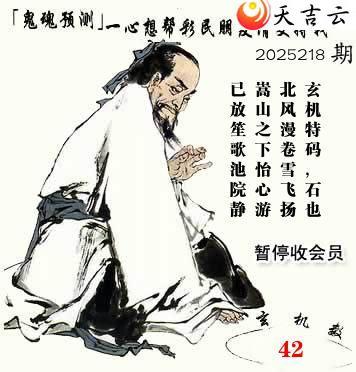 天吉云
「鬼魂预测」一心想帮彩民朋
2025218 期
玄机特码,石也
北风漫卷雪飞扬
嵩山之下怡心游
已放笙歌池院静
暂停收会员
玄机数
42